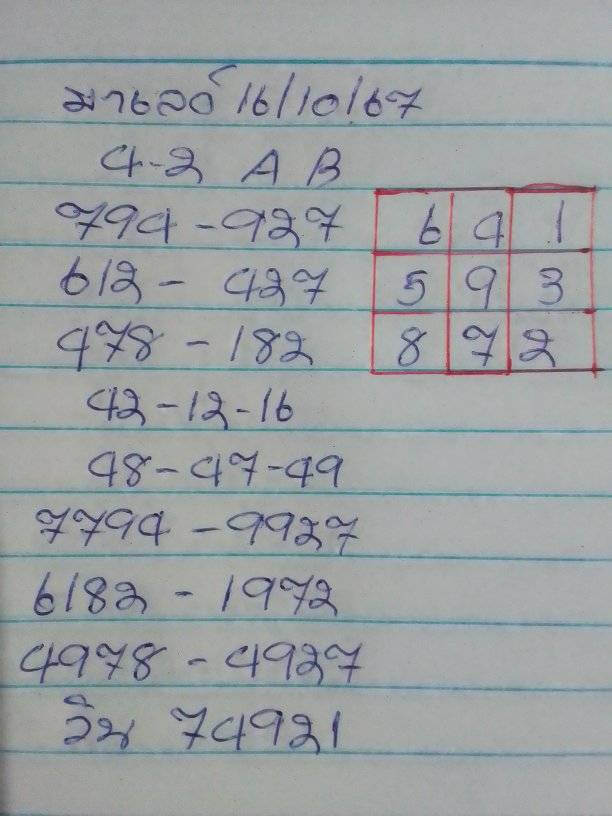 มาเลย์ 16/10/67
4-2 A B
794-927
612- 427
478-182
42-12-16
48-47-49
7794-9927
6182-1972
4978-4927
วิน 74921
6 4 1
5 9 3
8 7 2